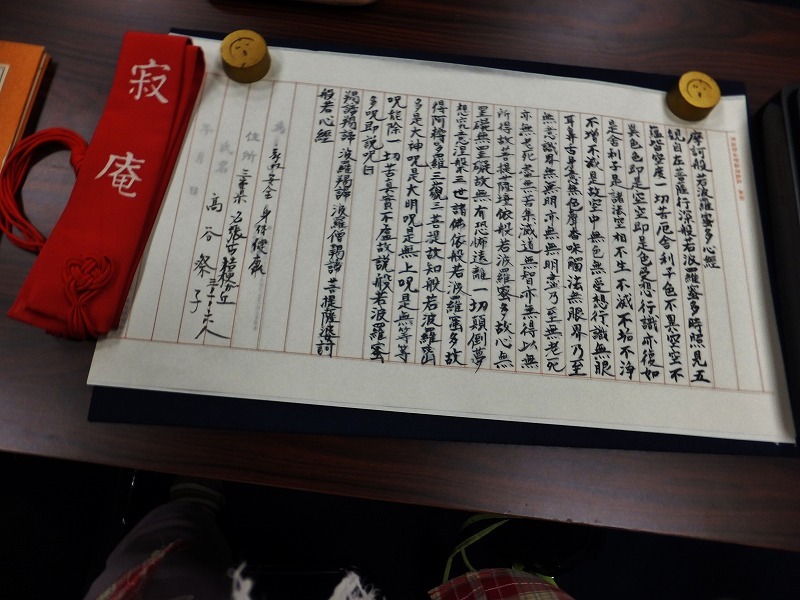 摩訶般若波羅蜜多心經
観自在菩薩行深般若波羅蜜多時照見五
蘊皆空度一切苦厄舎利子色不異空空不
異色色即是空空即是色受想行識亦復如
是舎利子是諸法空相不生不滅不垢不浄
不増不減是故空中無色無受想行識無眼
耳鼻舌身意無色聲香味觸法無眼界乃至
無意識界無無明亦無無明盡乃至無老死
亦無老死盡無苦集滅道無智亦無得以無
所得故菩提薩埵依般若波羅蜜多故心無
罣礙無罣礙故無有恐怖遠離一切顛倒夢
想究竟涅槃三世諸佛依般若波羅蜜多故
得阿耨多羅三藐三菩提故知般若波羅蜜
多是大神呪是大明呪是無上呪是無等等
呪能除一切苦真實不虚故説般若波羅蜜
多呪即説呪曰
羯諦羯諦 波羅羯諦 波羅僧羯諦 菩提薩婆訶
般若心經
為 安全 身体健康
住所 三重県
氏名 高谷 子
年 月 日
寂庵